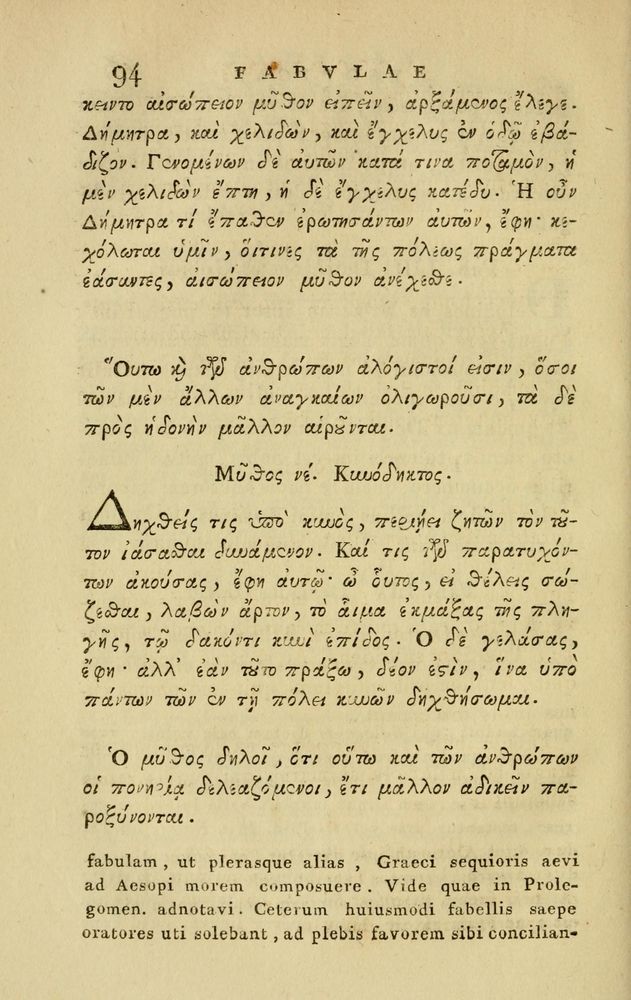 94 FABVLAE
κειντο αἰσώπειον μῦθον εἰπεῖν, ἀρξάμενος ἔλεγε.
Δήμητρα, καὶ χελιδὼν, καὶ ἔγχελυς ἐν ὁδῷ ἐβά-
διζον. Γενομένων δὲ αὐτῶν κατά τινα ποταμὸν, ἡ
μὲν χελιδὼν ἔπτη, ἡ δὲ ἔγχελυς κατέδυ. Ἡ οὖν
Δήμητρα τί ἔπαθεν ἐρωτησάντων αὐτῶν, ἔφη· κε-
χόλωται ὑμῖν, ὅιτινες τὰ τῆς πόλεως πράγματα
ἐάσαντες, αἰσώπειον μῦθον ἀνέχεσθε.
Ὅυτω καὶ τῶν ἀνθρώπων ἀλόγιστοί εἰσιν, ὅσοι
τῶν μὲν ἄλλων ἀναγκαίων ὀλιγωροῦσι, τὰ δὲ
πρὸς ἡδονὴν μᾶλλον αἱροῦνται.
Μῦθος νέ. Κυνόδηκτος.
Δηχθείς τις ὑπὸ κυνὸς, περιῄει ζητῶν τὸν τοῦ-
τον ἰάσασθαι δυνάμενον. Καί τις τῶν παρατυχόν-
των ἀκούσας, ἔφη αὐτῷ· ὦ οὗτος, εἰ θέλεις σώ-
ζεσθαι, λαβὼν ἄρτον, τὸ ἇιμα ἐκμάξας τῆς πλη-
γῆς, τῷ δακόντι κυνὶ ἐπίδος. Ὁ δὲ γελάσας,
ἔφη· ἀλλ' ἐὰν τοῦτο πράξω, δέον ἐστὶν, ἵνα ὑπὸ
πάντων τῶν ἐν τῇ πόλει κυνῶν δηχθήσωμαι.
Ὁ μῦθος δηλοῖ, ὅτι οὕτω καὶ τῶν ἀνθρώπων
οἱ πονηρίᾳ δελεαζόμενοι, ἔτι μᾶλλον ἀδικεῖν πα-
ροξύνονται.
fabulam, ut plerasque alias, Graeci sequioris aevi
ad Aesopi morem composuere. Vide quae in Prole-
gomen. adnotavi. Ceterum huiusmodi fabellis saepe
oratores uti solebant, ad plebis favorem sibi concilian-